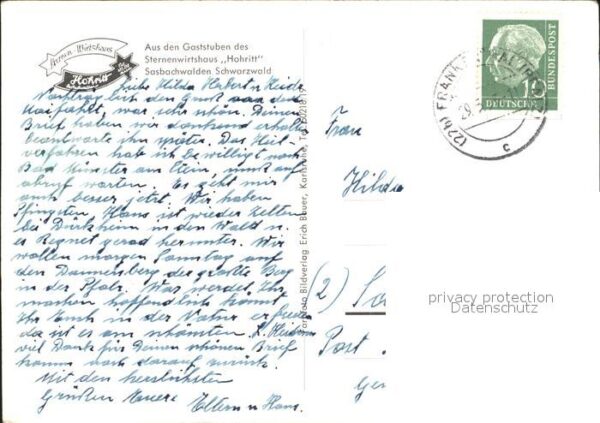 Sternen-Wirtshaus
Hohritt
Aus den Gaststuben des
Sternenwirtshaus „Hohritt"
Sasbachwalden Schwarzwald
Hilda Herbert u. Heide
den Gruß von der
Maifahrt, war sehr schön. Deinen
Brief haben wir dankend erhalten
beantworte ihn später. Das Heil-
verfahren hab ich bewilligt nach
Bad Münster am Stein, muß auf
abruf warten. Es geht mir
auch besser jetzt. Wir haben
Pfingsten, Hans ist wieder Zelten
bei Dürkheim in den Wald u.
es Regnet gerad herunter. Wir
wollen morgen Sonntag auf
den Donnersberg der größte Berg
in der Pfalz. Was werdet Ihr
machen hoffendlich könnt
Ihr Euch in der Natur erfreuen
da ist es am schönsten
viel Dank für Deinen schönen Brief
komme noch darauf zurück.
Mit den herzlichsten
Grüßen Eure
Eltern u. Hans.
Foto Bildverlag Erich Bauer, Karlsruhe, Tel.
Frau
Hilda
(2)
Post
10
DEUTSCHE
BUNDESPOST
(22b) FRANKENTHAL (PFALZ)
c
privacy protection
Datenschutz